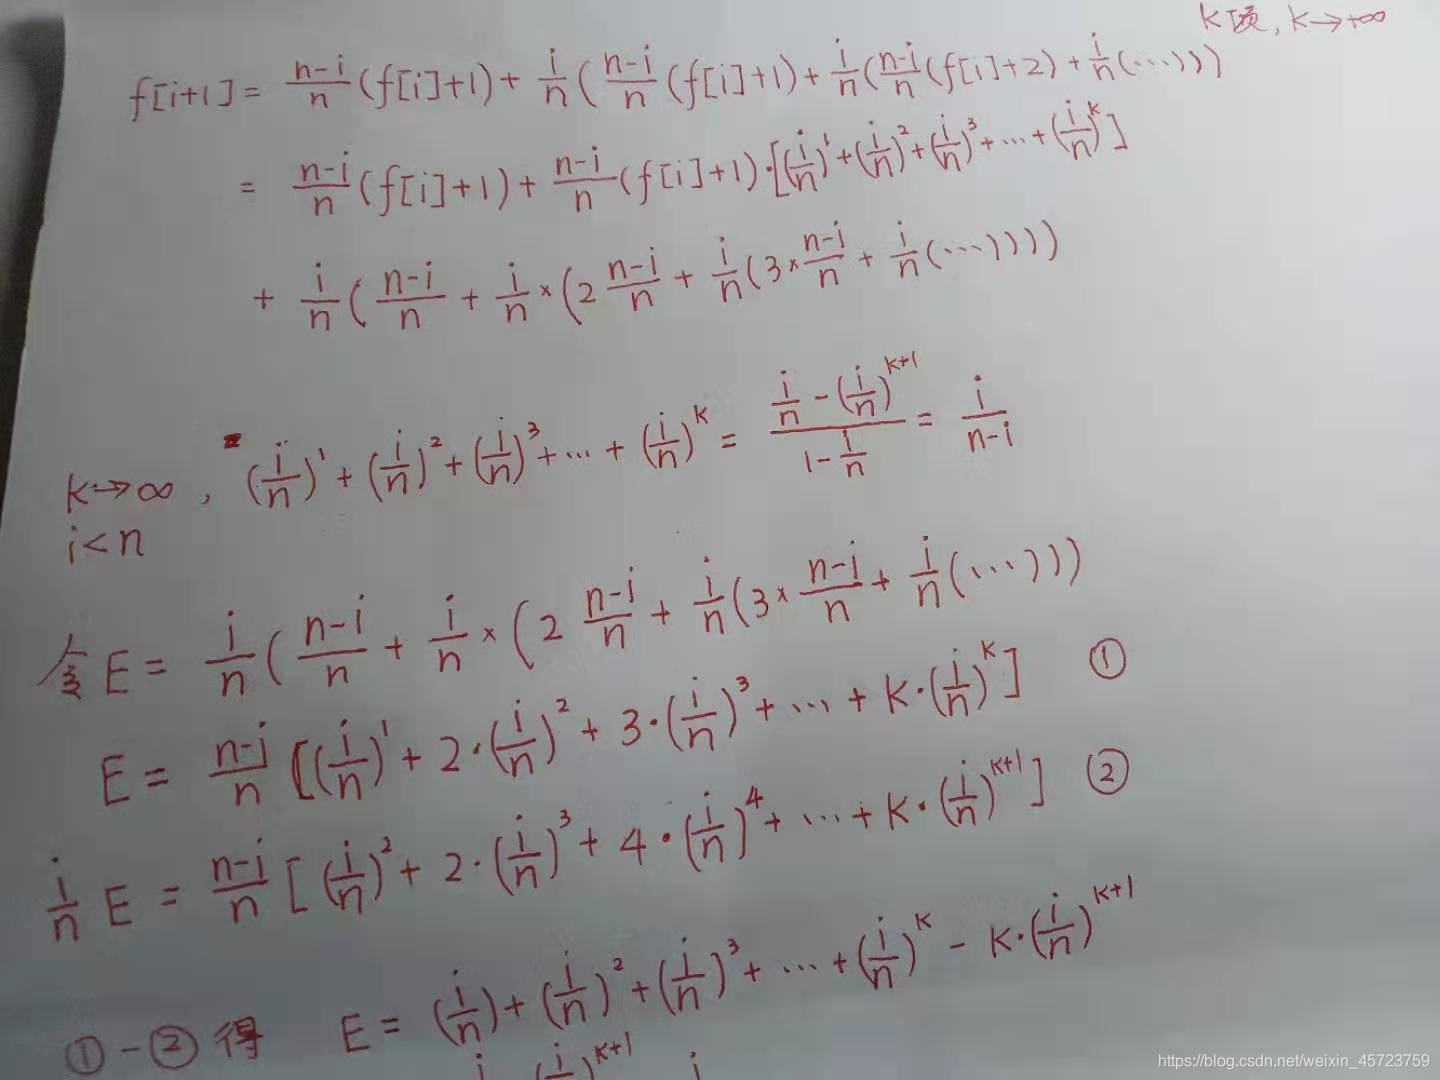 k项, k→+∞
f[i+1] = \frac{n-i}{n}(f[i]+1) + \frac{i}{n}(\frac{n-i}{n}(f[i]+1) + \frac{i}{n}(\frac{n-i}{n}(f[i]+2) + \frac{i}{n}(...)))
= \frac{n-i}{n}(f[i]+1) + \frac{n-i}{n}(f[i]+1)·[(\frac{i}{n})^1 + (\frac{i}{n})^2 + (\frac{i}{n})^3 + ... + (\frac{i}{n})^k]
+ \frac{i}{n}(\frac{n-i}{n} + \frac{i}{n}×(2\frac{n-i}{n} + \frac{i}{n}(3×\frac{n-i}{n} + \frac{i}{n}(...))))
k→∞, (\frac{i}{n})^1 + (\frac{i}{n})^2 + (\frac{i}{n})^3 + ... + (\frac{i}{n})^k = \frac{\frac{i}{n} - (\frac{i}{n})^{k+1}}{1 - \frac{i}{n}} = \frac{i}{n-i}
i<n
令 E = \frac{i}{n}(\frac{n-i}{n} + \frac{i}{n}×(2\frac{n-i}{n} + \frac{i}{n}(3×\frac{n-i}{n} + \frac{i}{n}(...)))
E = \frac{n-i}{n}[(\frac{i}{n})^1 + 2·(\frac{i}{n})^2 + 3·(\frac{i}{n})^3 + ... + k·(\frac{i}{n})^k] ①
\frac{i}{n} E = \frac{n-i}{n}[(\frac{i}{n})^2 + 2·(\frac{i}{n})^3 + 4·(\frac{i}{n})^4 + ... + k·(\frac{i}{n})^{k+1}] ②
①-②得 E = (\frac{i}{n}) + (\frac{i}{n})^2 + (\frac{i}{n})^3 + ... + (\frac{i}{n})^k - k·(\frac{i}{n})^{k+1}
https://blog.csdn.net/weixin_45723759